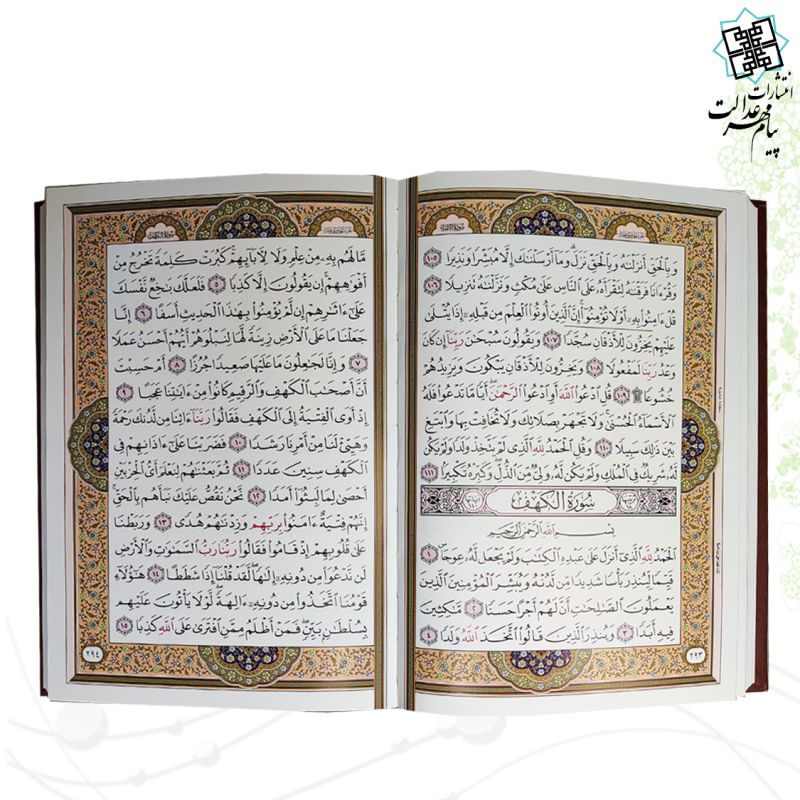 انتشارات
پیام مهر عدالت
وَبِالْحَقِّ أَنزَلْنَٰهُ وَبِالْحَقِّ نَزَلَ وَمَا أَرْسَلْنَٰكَ إِلَّا مُبَشِّرًا وَنَذِيرًا ١٠٥
وَقُرْءَانًا فَرَقْنَٰهُ لِتَقْرَأَهُ عَلَى النَّاسِ عَلَىٰ مُكْثٍ وَنَزَّلْنَٰهُ تَنزِيلًا ١٠٦
قُلْ ءَامِنُوا بِهِ أَوْ لَا تُؤْمِنُوا إِنَّ الَّذِينَ أُوتُوا الْعِلْمَ مِن قَبْلِهِ إِذَا يُتْلَىٰ
عَلَيْهِمْ يَخِرُّونَ لِلْأَذْقَانِ سُجَّدًا ١٠٧ وَيَقُولُونَ سُبْحَٰنَ رَبِّنَا إِن كَانَ
وَعْدُ رَبِّنَا لَمَفْعُولًا ١٠٨ وَيَخِرُّونَ لِلْأَذْقَانِ يَبْكُونَ وَيَزِيدُهُمْ
خُشُوعًا ١٠٩ قُلِ ادْعُوا اللَّهَ أَوِ ادْعُوا الرَّحْمَٰنَ أَيًّا مَا تَدْعُوا فَلَهُ
الْأَسْمَاءُ الْحُسْنَىٰ وَلَا تَجْهَرْ بِصَلَاتِكَ وَلَا تُخَافِتْ بِهَا وَابْتَغِ
بَيْنَ ذَٰلِكَ سَبِيلًا ١١٠ وَقُلِ الْحَمْدُ لِلَّهِ الَّذِي لَمْ يَتَّخِذْ وَلَدًا وَلَمْ يَكُن
لَهُ شَرِيكٌ فِي الْمُلْكِ وَلَمْ يَكُن لَهُ وَلِيٌّ مِنَ الذُّلِّ وَكَبِّرْهُ تَكْبِيرًا ١١١
سُورَةُ الْكَهْفِ
بِسْمِ اللَّهِ الرَّحْمَٰنِ الرَّحِيمِ
الْحَمْدُ لِلَّهِ الَّذِي أَنزَلَ عَلَىٰ عَبْدِهِ الْكِتَٰبَ وَلَمْ يَجْعَل لَهُ عِوَجًا ١
قَيِّمًا لِيُنذِرَ بَأْسًا شَدِيدًا مِن لَدُنْهُ وَيُبَشِّرَ الْمُؤْمِنِينَ الَّذِينَ
يَعْمَلُونَ الصَّٰلِحَٰتِ أَنَّ لَهُمْ أَجْرًا حَسَنًا ٢ مَٰكِثِينَ
فِيهِ أَبَدًا ٣ وَيُنذِرَ الَّذِينَ قَالُوا اتَّخَذَ اللَّهُ وَلَدًا ٤
٢٩٣
مَا لَهُم بِهِ مِنْ عِلْمٍ وَلَا لِءَابَائِهِمْ كَبُرَتْ كَلِمَةً تَخْرُجُ مِنْ
أَفْوَٰهِهِمْ إِن يَقُولُونَ إِلَّا كَذِبًا ٥ فَلَعَلَّكَ بَٰخِعٌ نَفْسَكَ
عَلَىٰ ءَاثَٰرِهِمْ إِن لَمْ يُؤْمِنُوا بِهَٰذَا الْحَدِيثِ أَسَفًا ٦ إِنَّا
جَعَلْنَا مَا عَلَى الْأَرْضِ زِينَةً لَهَا لِنَبْلُوَهُمْ أَيُّهُمْ أَحْسَنُ عَمَلًا
٧ وَإِنَّا لَجَٰعِلُونَ مَا عَلَيْهَا صَعِيدًا جُرُزًا ٨ أَمْ حَسِبْتَ
أَنَّ أَصْحَٰبَ الْكَهْفِ وَالرَّقِيمِ كَانُوا مِنْ ءَايَٰتِنَا عَجَبًا ٩
إِذْ أَوَى الْفِتْيَةُ إِلَى الْكَهْفِ فَقَالُوا رَبَّنَا ءَاتِنَا مِن لَدُنكَ رَحْمَةً
وَهَيِّئْ لَنَا مِنْ أَمْرِنَا رَشَدًا ١٠ فَضَرَبْنَا عَلَىٰ ءَاذَانِهِمْ فِي
الْكَهْفِ سِنِينَ عَدَدًا ١١ ثُمَّ بَعَثْنَٰهُمْ لِنَعْلَمَ أَيُّ الْحِزْبَيْنِ
أَحْصَىٰ لِمَا لَبِثُوا أَمَدًا ١٢ نَحْنُ نَقُصُّ عَلَيْكَ نَبَأَهُم بِالْحَقِّ
إِنَّهُمْ فِتْيَةٌ ءَامَنُوا بِرَبِّهِمْ وَزِدْنَٰهُمْ هُدًى ١٣ وَرَبَطْنَا
عَلَىٰ قُلُوبِهِمْ إِذْ قَامُوا فَقَالُوا رَبُّنَا رَبُّ السَّمَٰوَٰتِ وَالْأَرْضِ
لَن نَدْعُوَا مِن دُونِهِ إِلَٰهًا لَقَدْ قُلْنَا إِذًا شَطَطًا ١٤ هَٰؤُلَاءِ
قَوْمُنَا اتَّخَذُوا مِن دُونِهِ ءَالِهَةً لَوْلَا يَأْتُونَ عَلَيْهِم
بِسُلْطَٰنٍ بَيِّنٍ فَمَنْ أَظْلَمُ مِمَّنِ افْتَرَىٰ عَلَى اللَّهِ كَذِبًا ١٥
٢٩٤